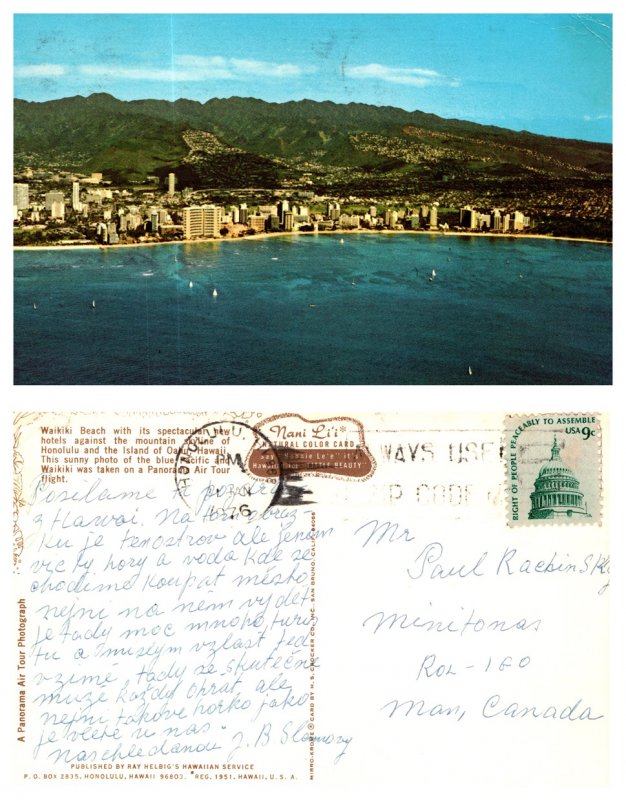 Waikiki Beach with its spectacular new
hotels against the mountain skyline of
Honolulu and the Island of Oahu, Hawaii.
This sunny photo of the blue Pacific and
Waikiki was taken on a Panorama Air Tour
flight.
Nani Li'i*
NATURAL COLOR CARD
say "Nannie Le'e" it's
Hawaiian for "LITTLE BEAUTY"
HONOLULU,
PM
1976
ALWAYS USE
ZIP CODE
RIGHT OF PEOPLE PEACEABLY TO ASSEMBLE
USA 9c
Posilame ti pozdrav
z Hawai. Na tom obraz-
ku je ten ostrov ale jenom
vic ty hory a voda kde se
chodime koupat město
nejni na něm vydět
je tady moc mnoho turis
tu a musim vzlast ted
v zimě, tady se skutečně
muze každy ohrat ale
nejni takove horko jako
je v letě u nas
Naschledanou J. B Slamovy
Mr
Paul Racbinsky
Minitonas
ROL-1G0
Man, Canada
A Panorama Air Tour Photograph
MIRRO-KROME ® CARD BY H.S. CROCKER CO., INC., SAN BRUNO, CALIF. 94066
PUBLISHED BY RAY HELBIG'S HAWAIIAN SERVICE
P. O. BOX 2835, HONOLULU, HAWAII 96803. *REG. 1951, HAWAII, U. S. A.